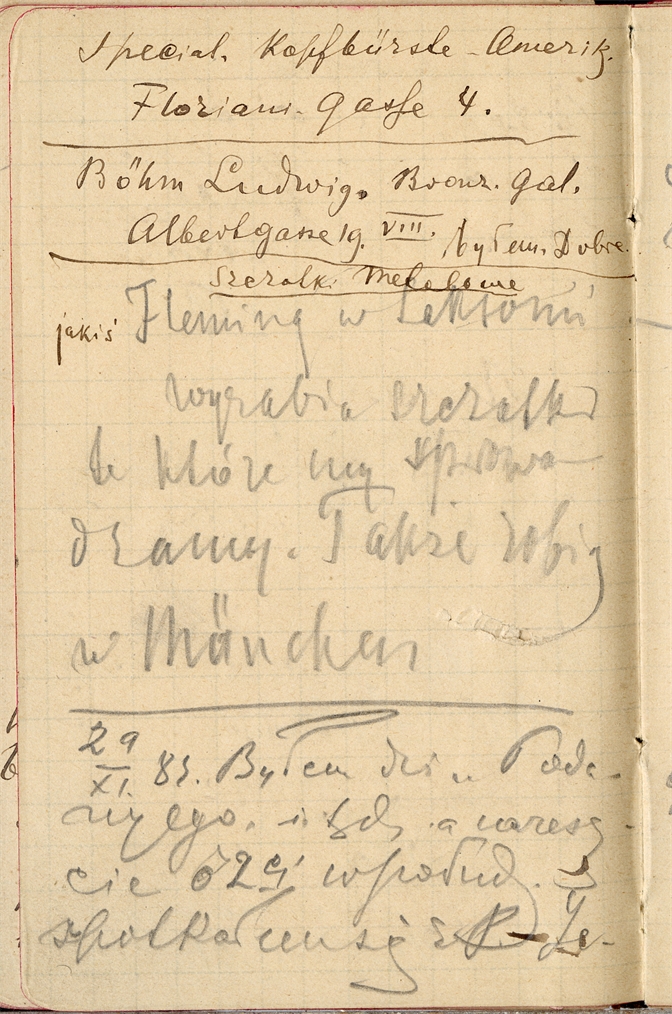 Special. Kopfbürste - Amerik.
Floriani-gasse 4.
Böhm Ludwig. Bronz. gal.
Albertgasse 19. VIII. byłem. Dobre.
Szczotk. Metalowe
jakiś Fleming w
wyrabia szczotki
te które my sprowa-
dzamy. Także robią
w München
29/XI. 83. Byłem dziś u
i a naresz-
cie o 2ej wpołud.
spotkałem się z